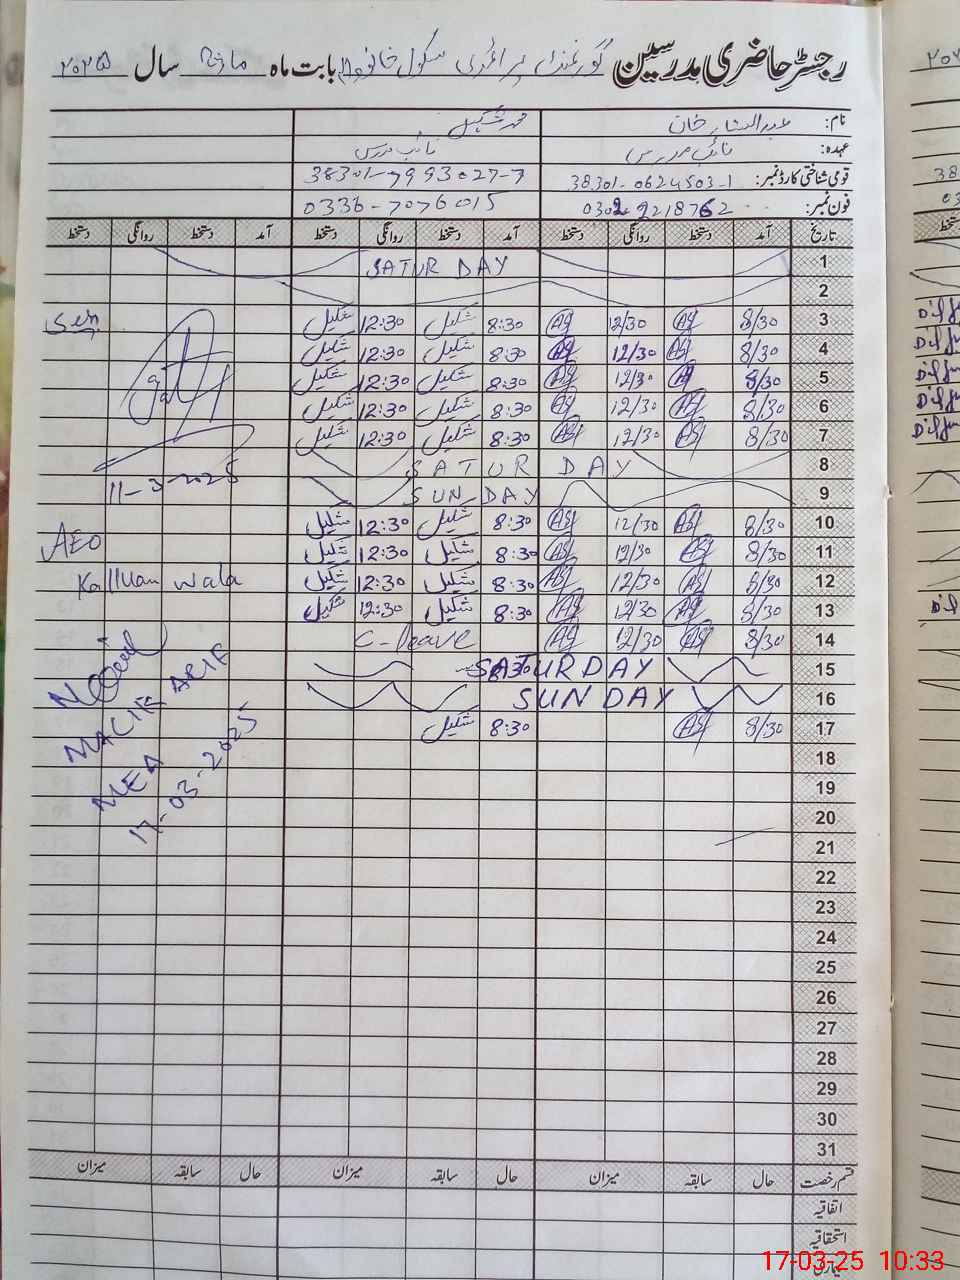 رجسٹر حاضری مدرسین گورنمنٹ پرائمری سکول بابت ماہ مارچ سال ۲۰۲۵
نام: عبدالستار خان محمد شکیل
عہدہ: نائب مدرس نائب مدرس
قومی شناختی کارڈ نمبر: 38301-0624503-1 38301-9993027-7
فون نمبر: 0302 9218762 0336-7076015
تاریخ آمد دستخط روانگی دستخط آمد دستخط روانگی دستخط آمد دستخط روانگی دستخط
1 SATUR DAY
2
3 8/30 12/30 8:30 شکیل 12:30 شکیل
4 8/30 12/30 8:30 شکیل 12:30 شکیل
5 8/30 12/30 8:30 شکیل 12:30 شکیل
6 8/30 12/30 8:30 شکیل 12:30 شکیل
7 8/30 12/30 8:30 شکیل 12:30 شکیل
8 SATUR DAY
9 SUN DAY
11-3-2025
10 8/30 12/30 8:30 شکیل 12:30 شکیل
11 8/30 12/30 8:30 شکیل 12:30 شکیل
AEO
12 8/30 12/30 8:30 شکیل 12:30 شکیل
Kalluan wala
13 8/30 12/30 8:30 شکیل 12:30 شکیل
14 8/30 12/30 C-Leave
15 SATURDAY
16 SUNDAY
17 8/30 8:30 شکیل
MALIK ARIF
MEA
17-03-2025
18
19
20
21
22
23
24
25
26
27
28
29
30
31
قسم رخصت حال سابقہ میزان حال سابقہ میزان حال سابقہ میزان
اتفاقیہ
استحقاقیہ
بیماری
17-03-25 10:33